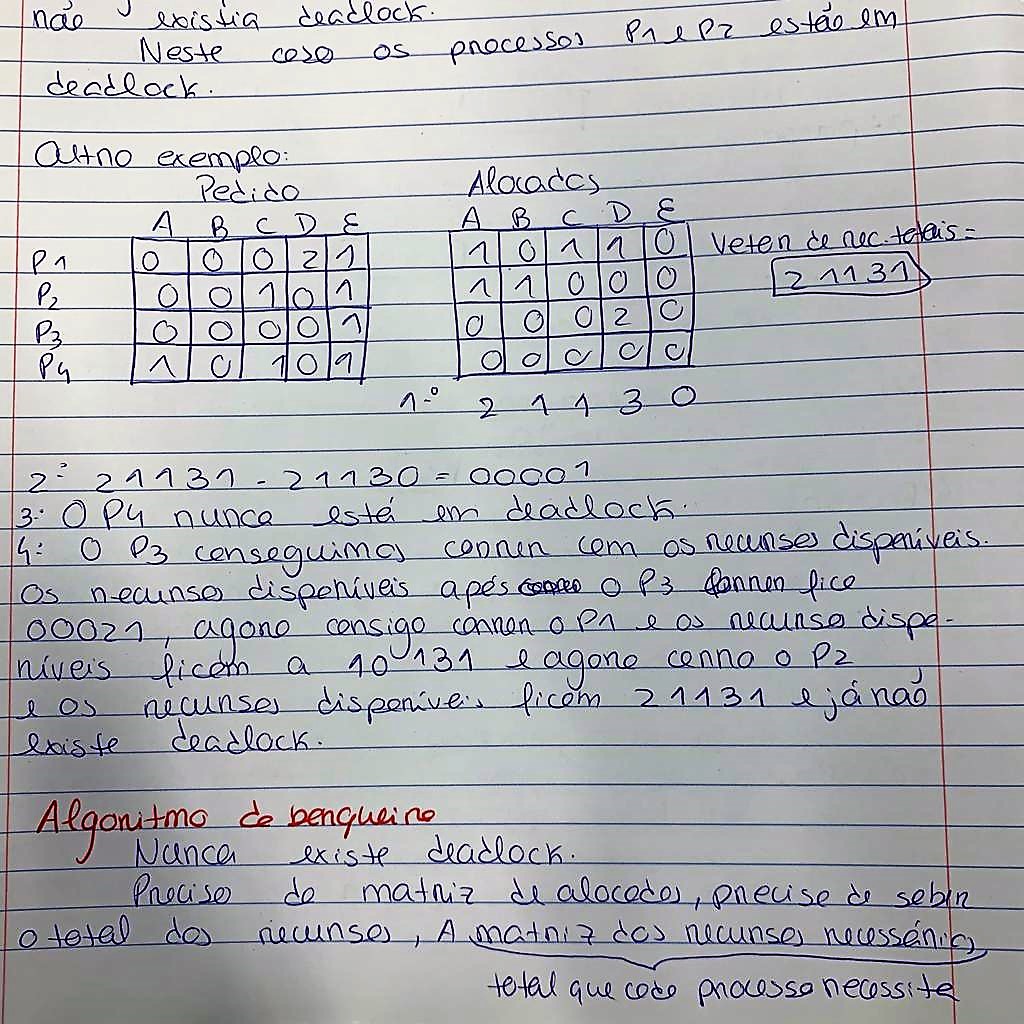 não existia deadlock.
Neste caso os processos P1 e P2 estão em
deadlock.
Outro exemplo:
Pedido Alocados
A B C D E A B C D E
P1 0 0 0 2 1 1 0 1 1 0 Vetor de rec. totais =
P2 0 0 1 0 1 1 1 0 0 0 21131
P3 0 0 0 0 1 0 0 0 2 0
P4 1 0 1 0 1 0 0 0 0 0
1º 2 1 1 3 0
2º 21131 - 21130 = 00001
3º O P4 nunca está em deadlock.
4º O P3 conseguimos correr com os recursos disponíveis.
Os recursos disponíveis após o P3 correr fica
00021, agora consigo correr o P1 e os recursos dispo-
níveis ficam a 10131 e agora corro o P2
e os recursos disponíveis ficam 21131 e já não
existe deadlock.
Algoritmo do banqueiro
Nunca existe deadlock.
Preciso da matriz de alocados, preciso de saber
o total dos recursos, A matriz dos recursos necessários
total que cada processo necessita